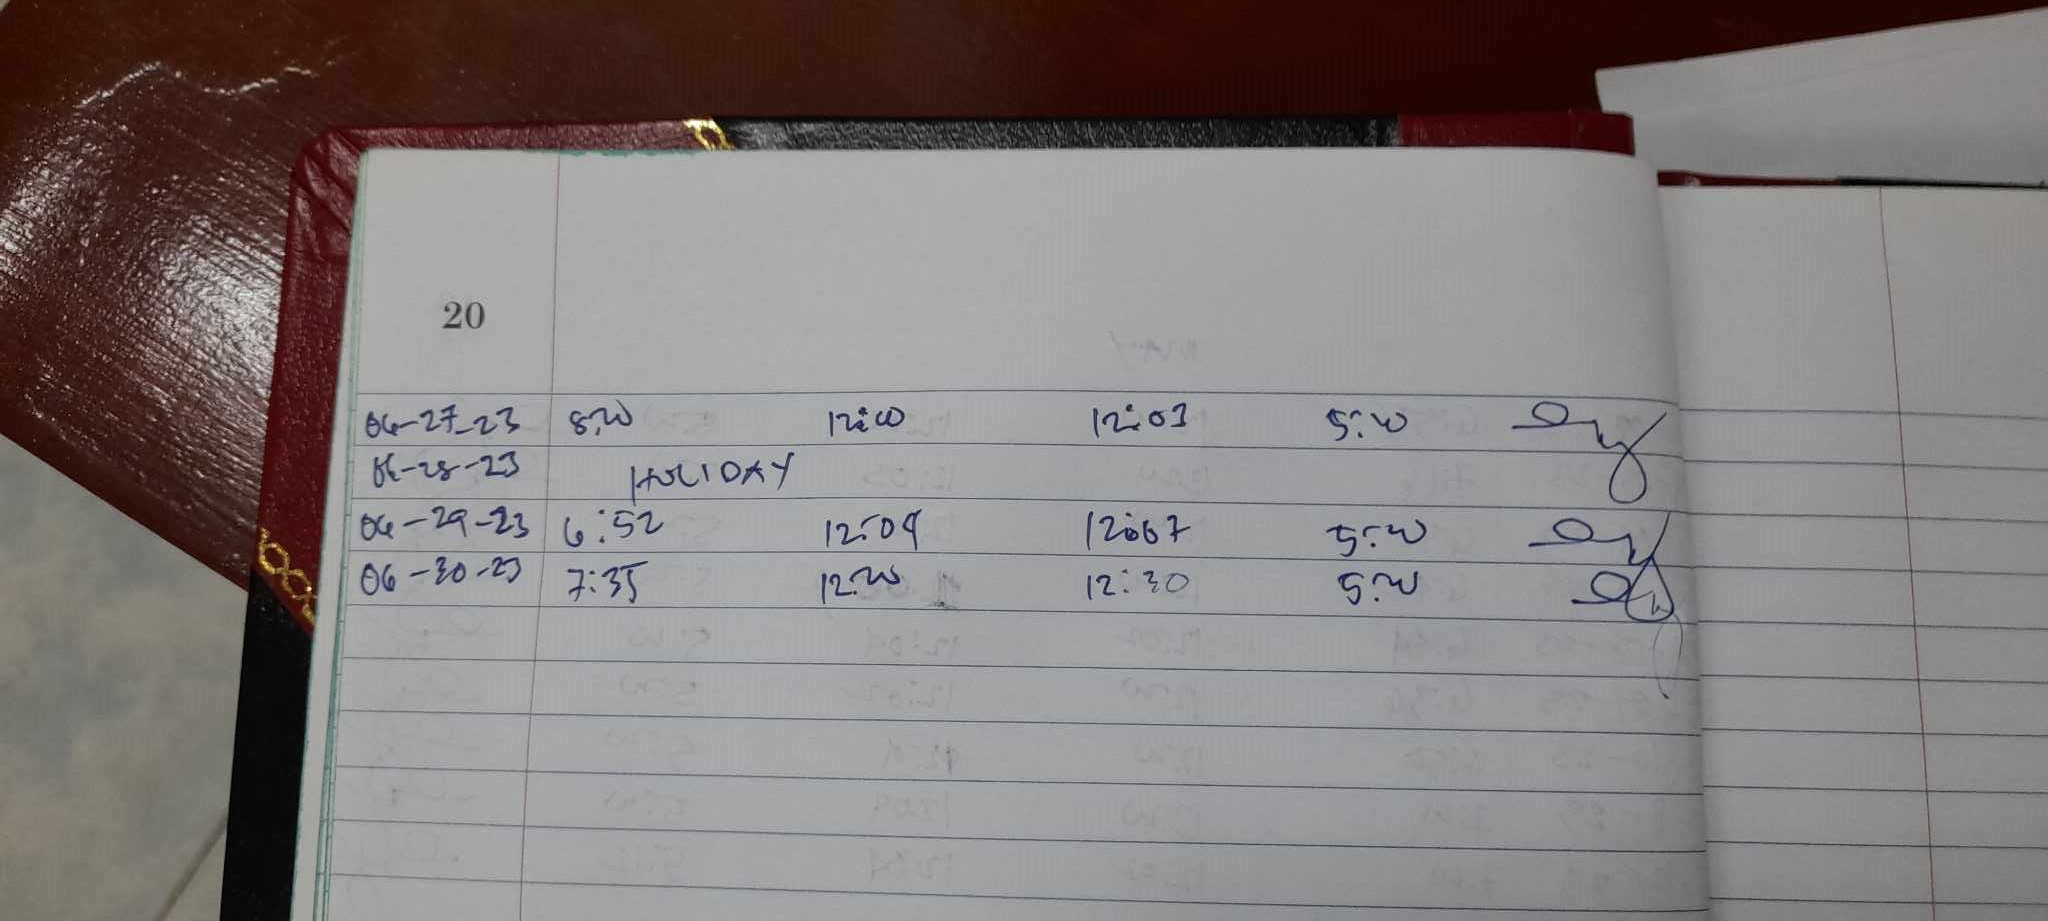 20
06-27-23 8:00 12:00 12:03 5:00
06-28-23 HOLIDAY
06-29-23 6:52 12:04 12:07 5:00
06-30-23 7:35 12:00 12:30 5:00